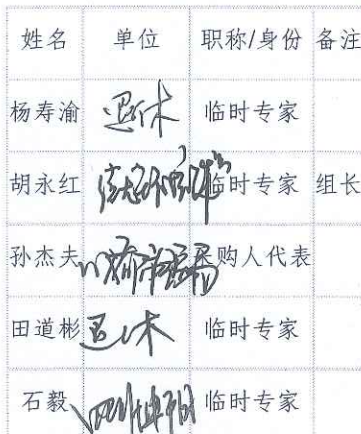 姓名 单位 职称/身份 备注
杨寿渝 退休 临时专家
胡永红 临时专家 组长
孙杰夫 购人代表
田道彬 退休 临时专家
石毅 临时专家